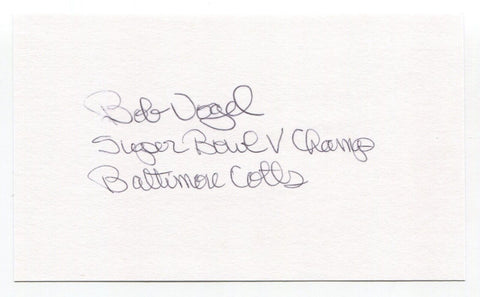 Bob Vogel
Super Bowl V Champ
Baltimore Colts